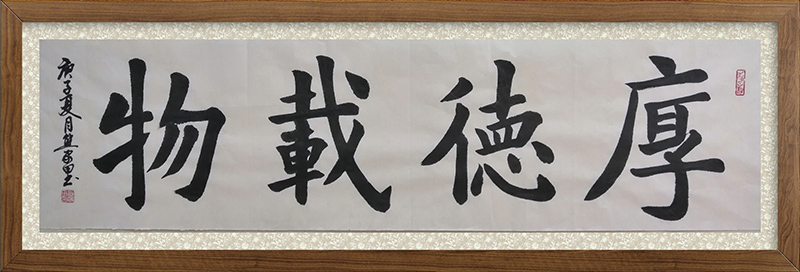 厚徳載物
庚子夏月